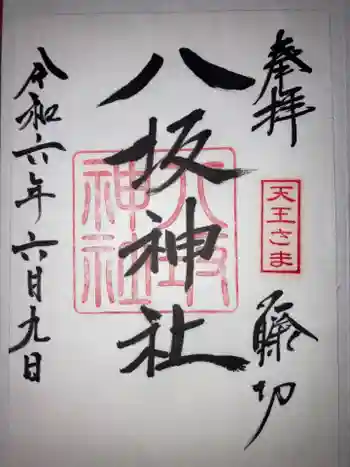 奉拝
天王さま
八坂神社
八坂
神社
令和六年六月九日